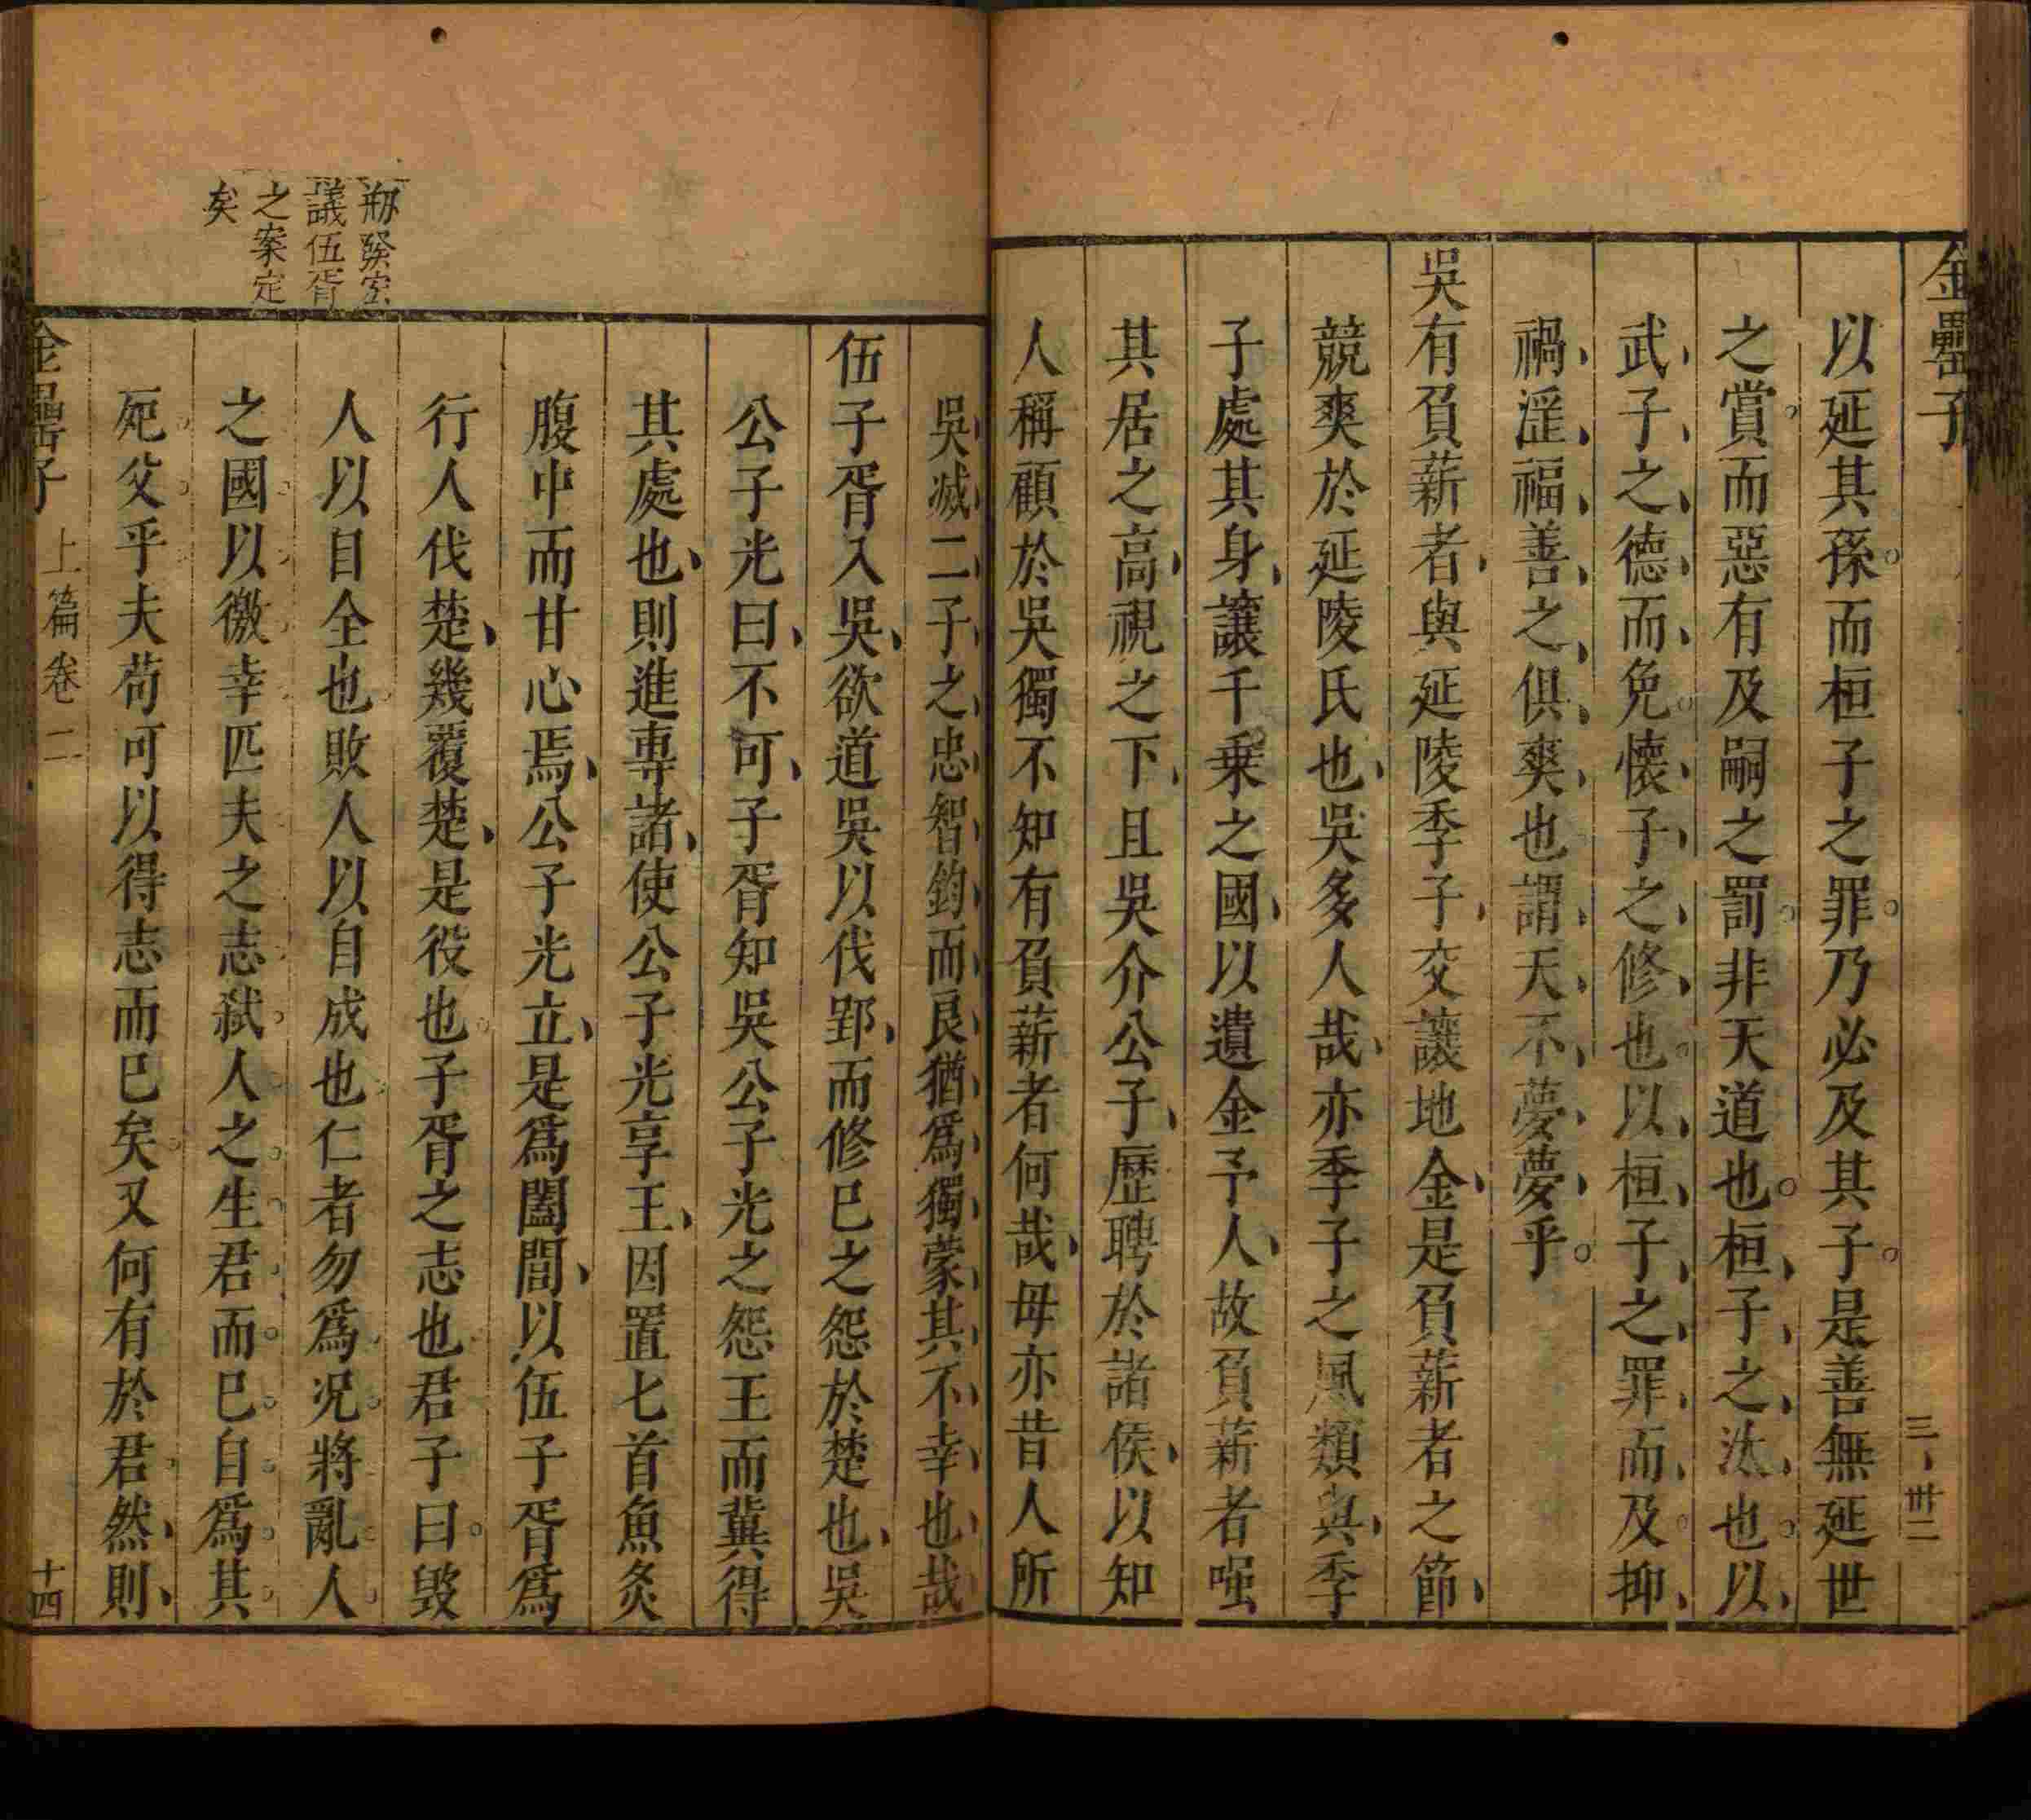 金罍子
三、卅二
以延其孫而桓子之罪乃必及其子是善無延世
之賞而惡有及嗣之罰非天道也桓子之汰也以
武子之德而免懷子之修也以桓子之罪而及抑
禍淫福善之俱爽也謂天不夢夢乎
吳有負薪者與延陵季子交讓地金是負薪者之節
競爽於延陵氏也吳多人哉亦季子之風類與季
子處其身讓千乗之國以遺金予人故負薪者嗤
其居之高視之下且吳介公子歷聘於諸侯以知
人稱顧於吳獨不知有負薪者何哉毋亦昔人所
吳滅二子之忠智鈞而良猶爲獨蒙其不幸也哉
伍子胥入吳欲道吳以伐郢而修巳之怨於楚也吳
公子光曰不可子胥知吳公子光之怨王而冀得
其處也則進專諸使公子光享王因置匕首魚炙
腹中而甘心焉公子光立是爲闔閭以伍子胥爲
行人伐楚幾覆楚是役也子胥之志也君子曰毀
人以自全也敗人以自成也仁者勿爲况將亂人
之國以徼幸匹夫之志弑人之生君而巳自爲其
死父乎夫苟可以得志而巳矣又何有於君然則
金罍子 上篇卷二
十四
議伍胥
之案定
矣